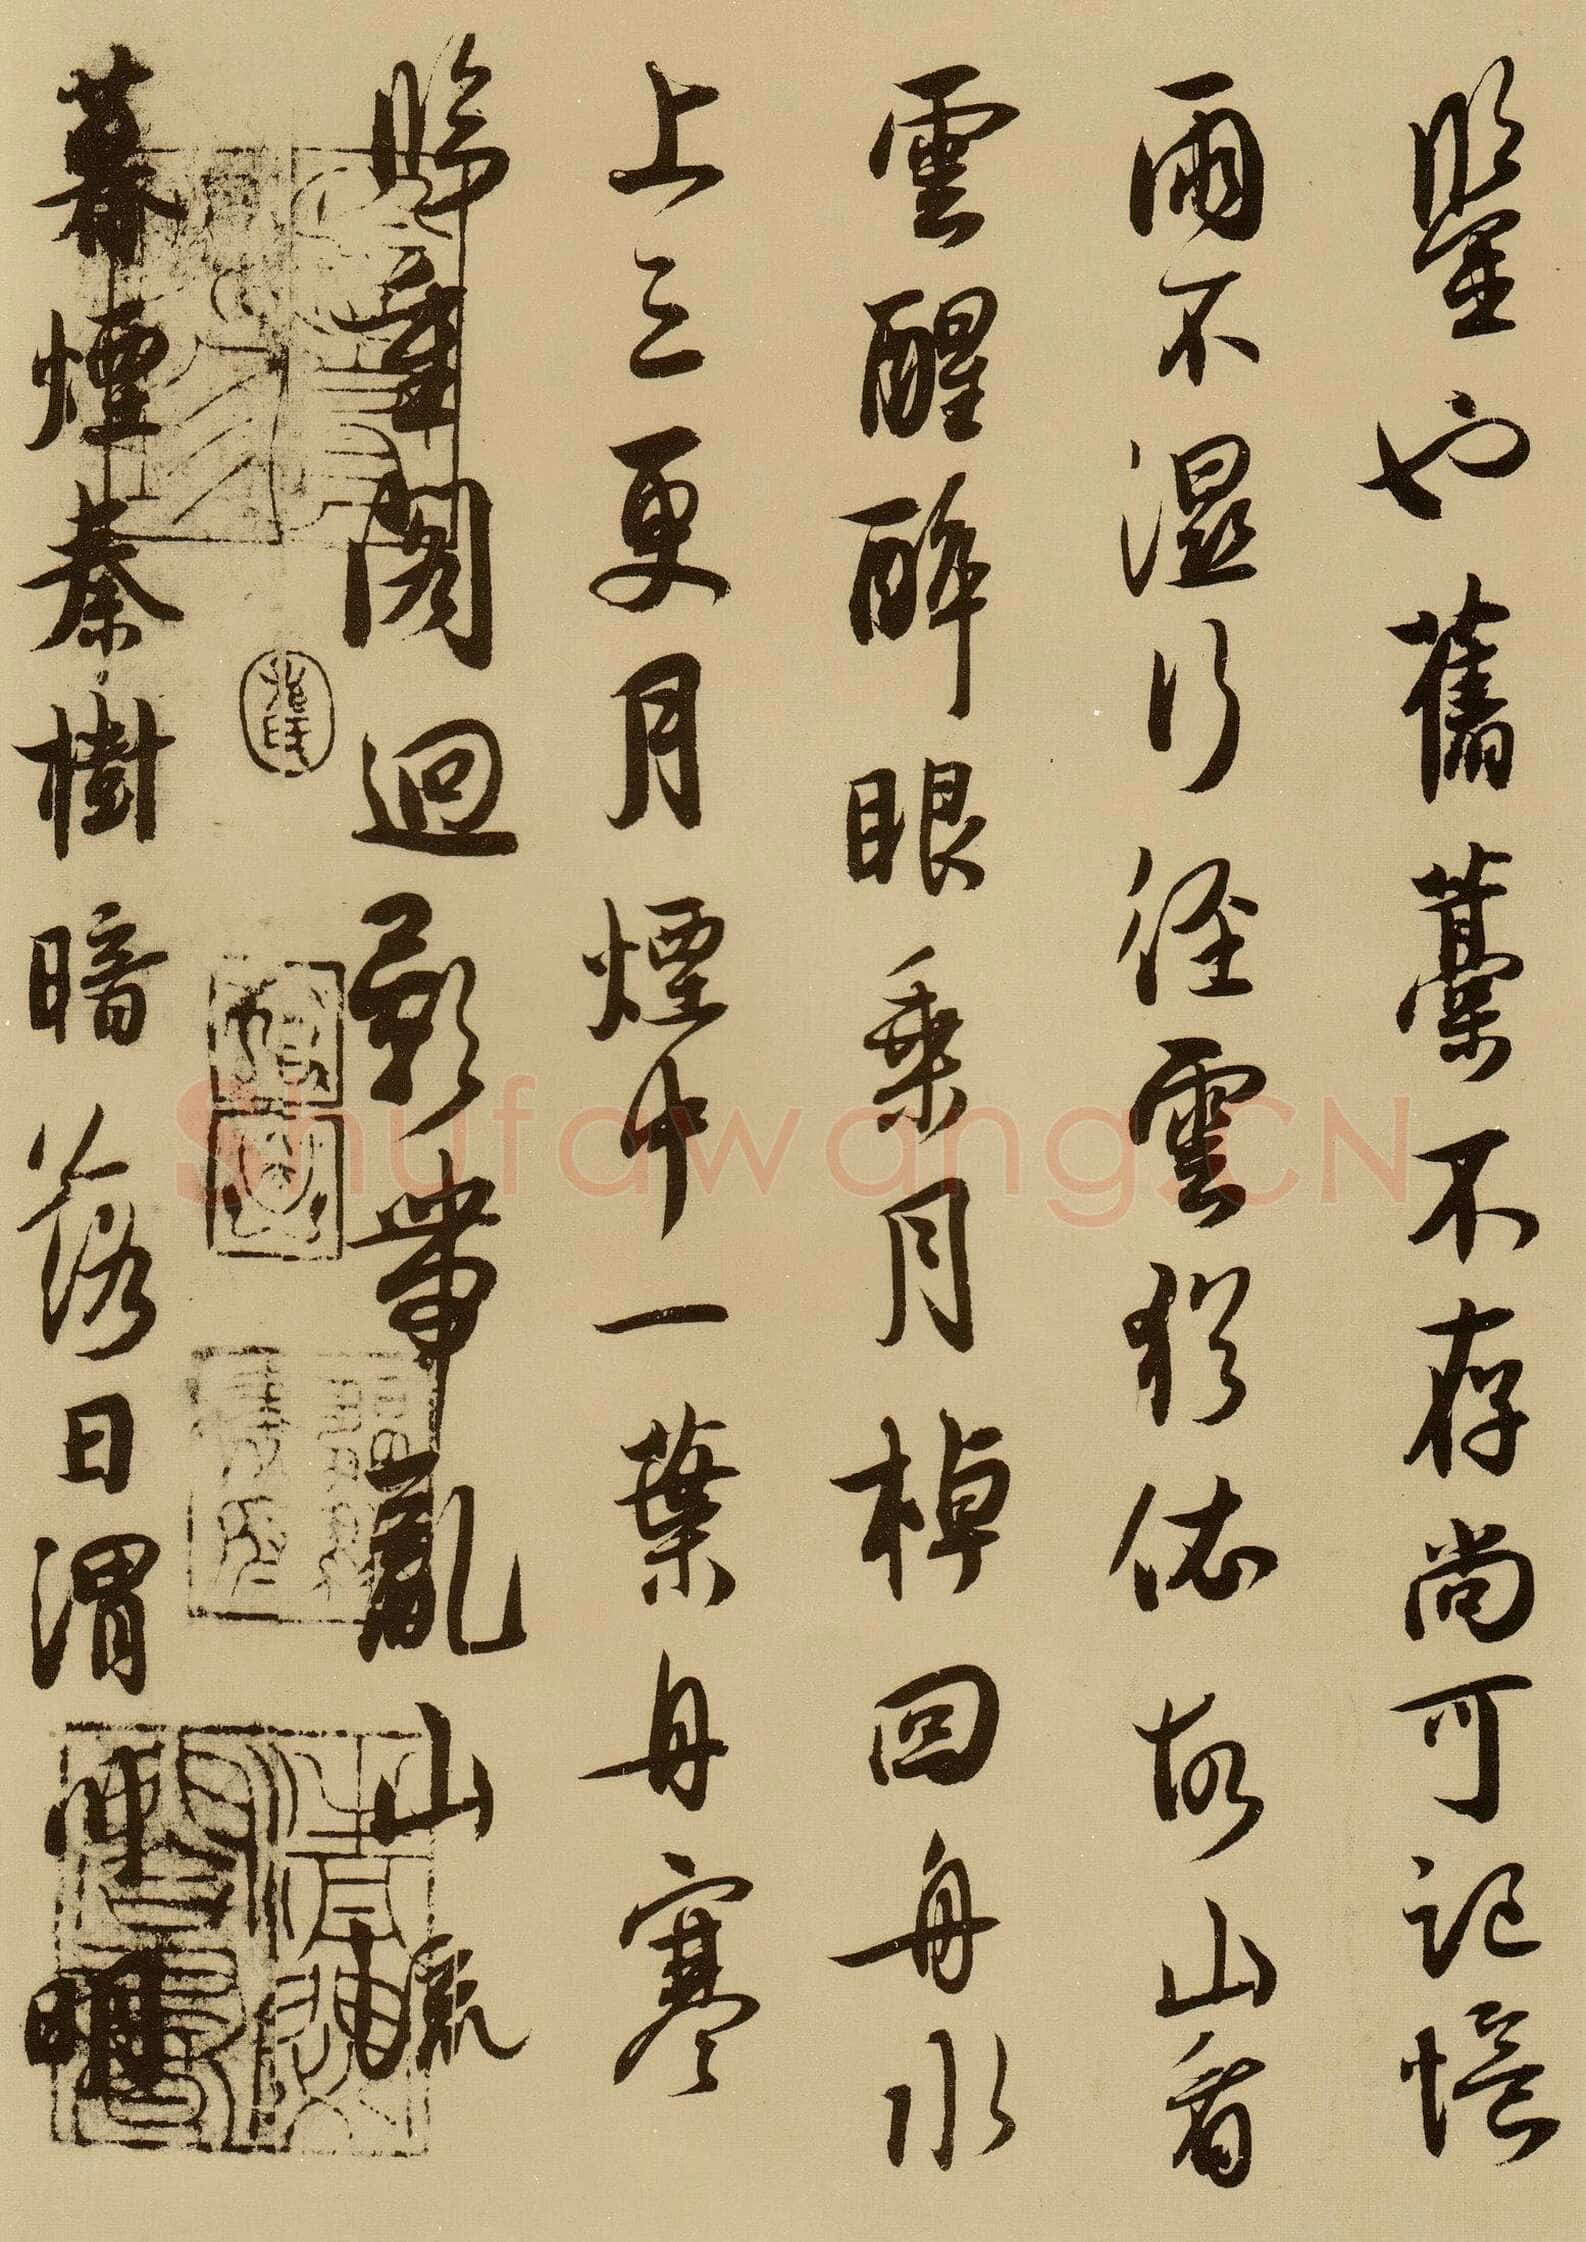 鑒也舊藁不存尚可記憶
雨不濕行徑雲猶依故山看
雲醒醉眼乘月棹回舟水
上三更月煙中一葉舟寒
將重閣迴影帶亂山流
暮煙秦樹暗落日渭川明
Shufawang.CN